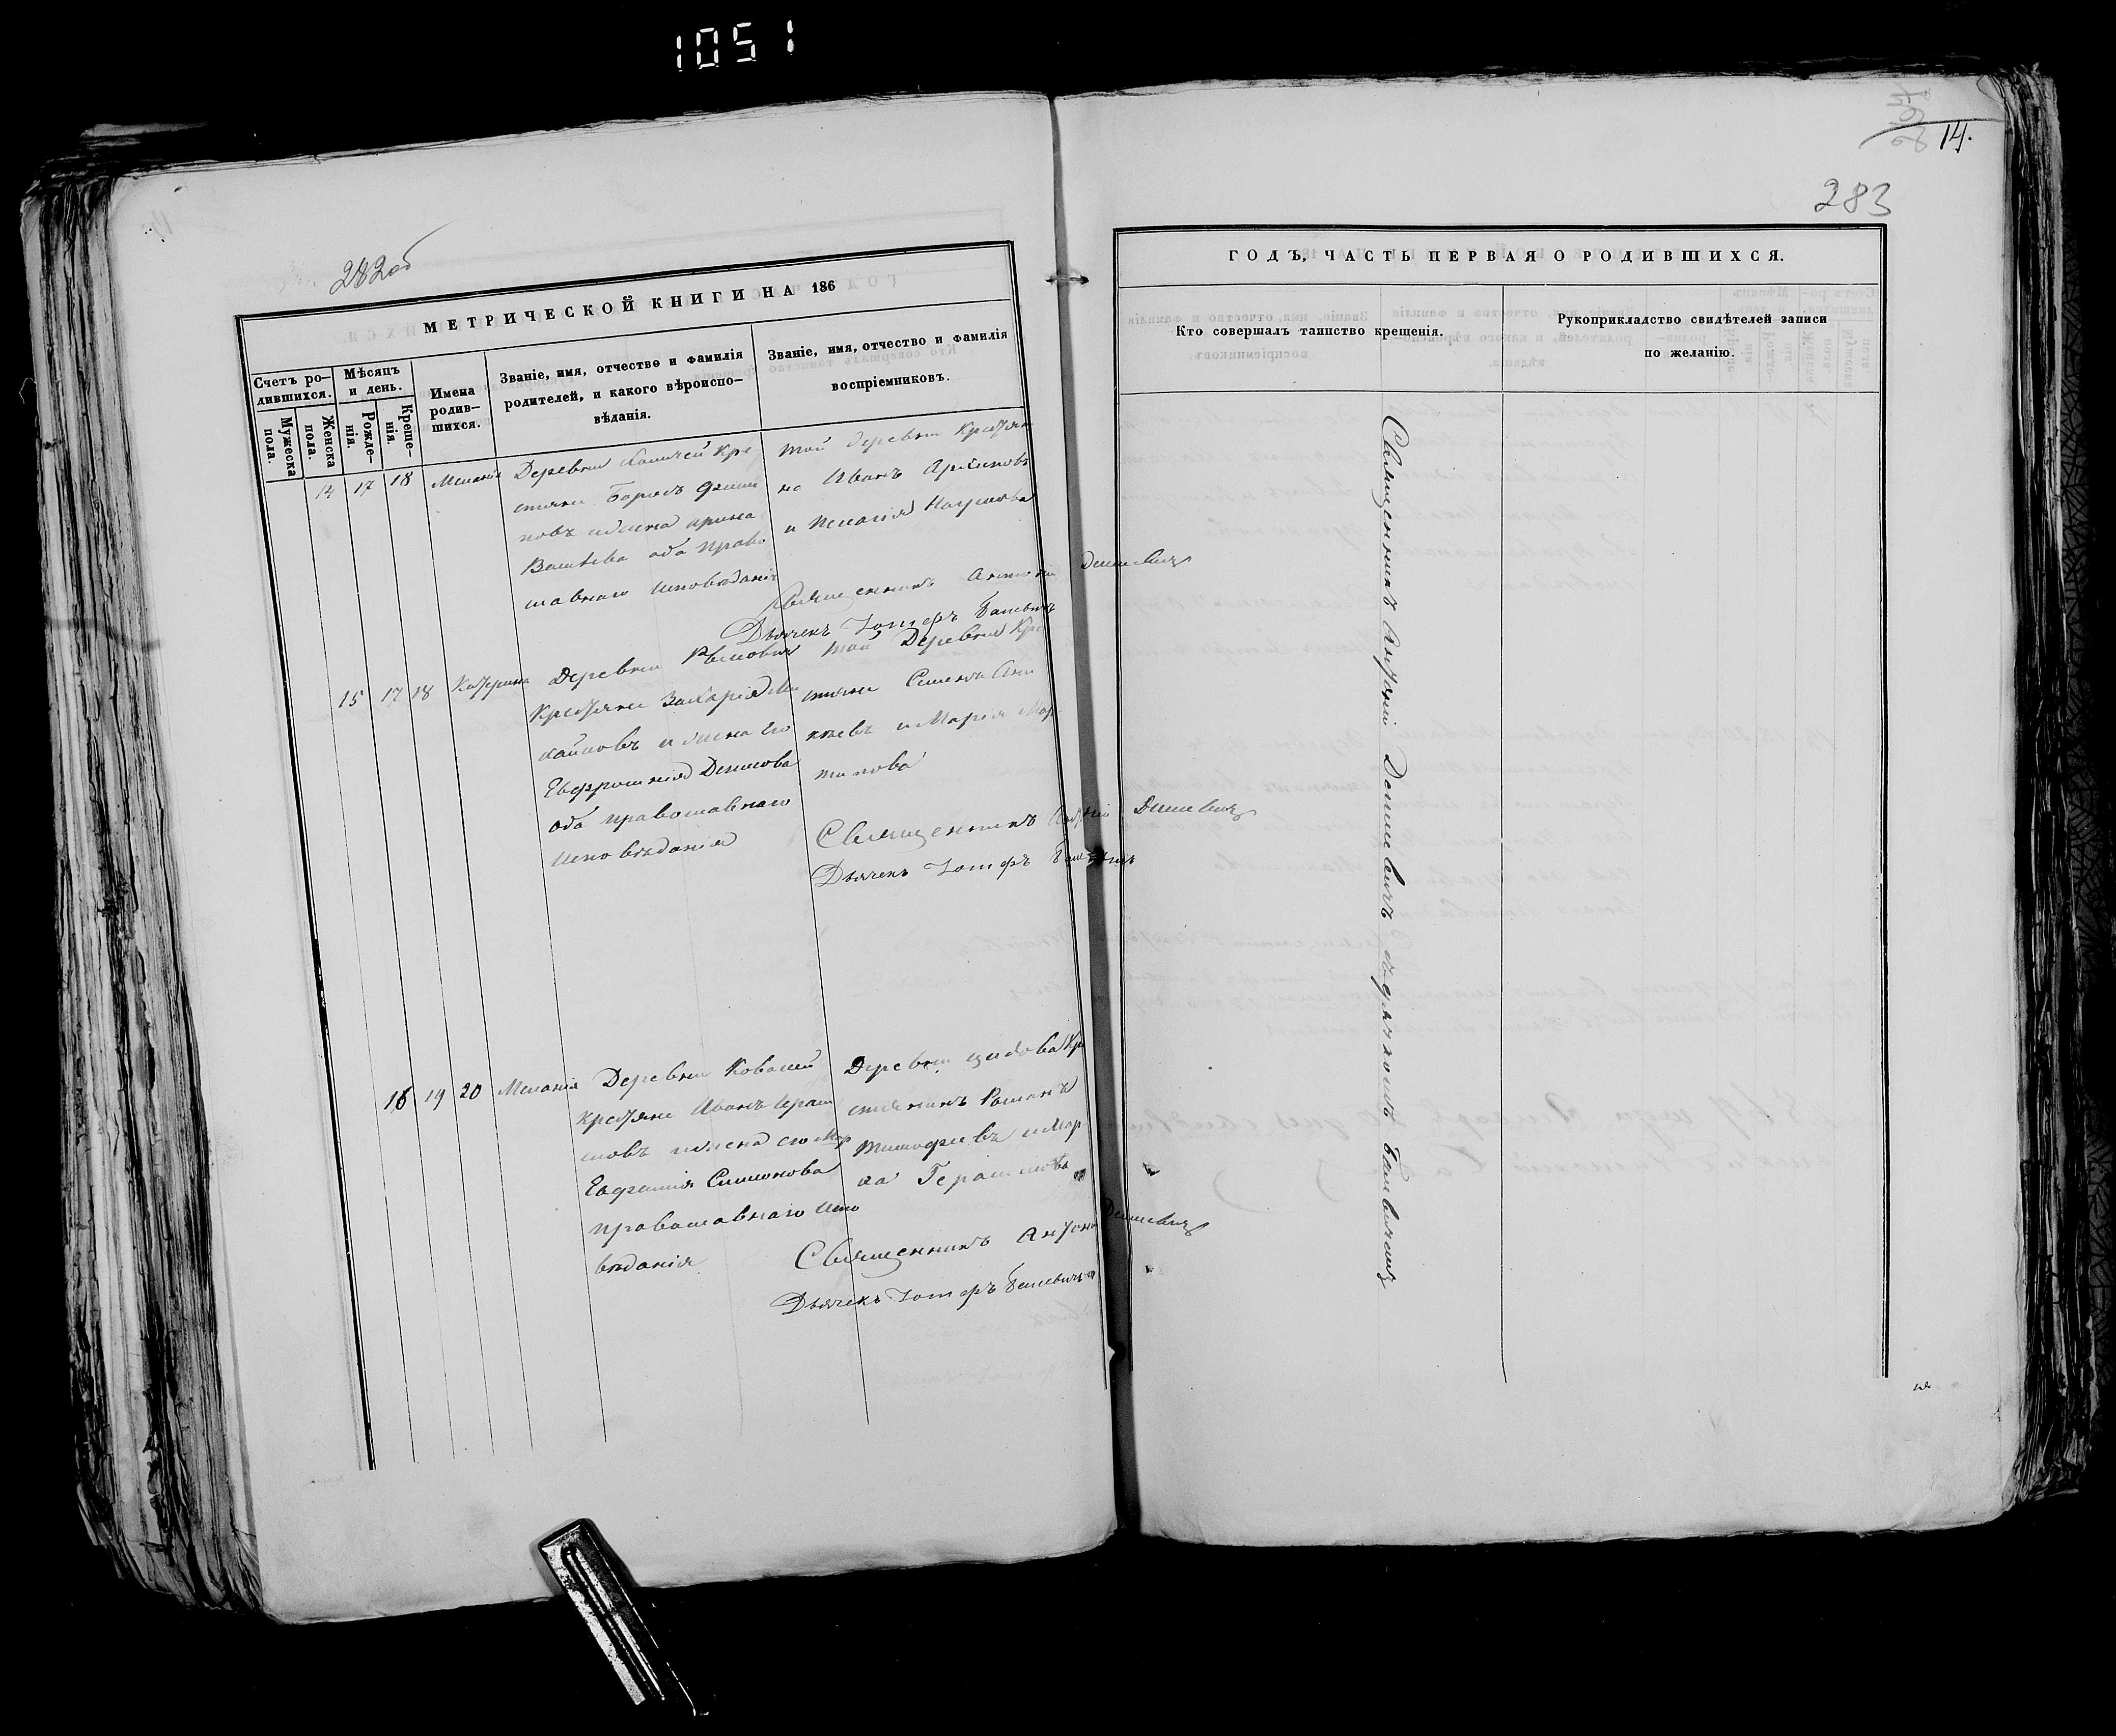 1051
282об
МЕТРИЧЕСКОЙ КНИГИ НА 186
Счетъ ро-
дившихся.
Мужеска
пола.
Женска
пола.
Мѣсяцъ
и день.
Рожде-
нія.
Креще-
нія.
Имена
родив-
шихся.
Званіе, имя, отчество и фамилія
родителей, и какого вѣроиспо-
вѣданія.
Званіе, имя, отчество и фамилія
воспріемниковъ.
14 17 18 Меланія
Деревни Кре
стяни Борисъ
новъ и жена Ирина
Васильева оба право
славнаго исповѣданія
той деревни Крестяни
нъ Иванъ Архиповъ
и Меланія Наумова
Священникъ Антоній Денисевичъ
Дьячекъ Іосифъ
15 17 18 Катерина
Деревни
Крестяни Захарія Ми
хайловъ и жена его
Евфросинія Денисова
оба православнаго
исповѣданія
той Деревни Кре
стяни Семенъ
и Марія Мар
тинова
Священникъ Антоній Денисевичъ
Дьячекъ Іосифъ
16 19 20 Меланія
Деревни Ковалей
Крестяни Иванъ Гераси
мовъ и жена его
Евфимія Симонова
православнаго испо
вѣданія
Деревни Кре
стянинъ Романъ
Тимофеевъ и Мар
ѳа Герасимова
Священникъ Антоній Денисевичъ
Дьячекъ Іосифъ
14.
283
ГОДЪ, ЧАСТЬ ПЕРВАЯ О РОДИВШИХСЯ.
Кто совершалъ таинство крещенія.
Рукоприкладство свидѣтелей записи
по желанію.
Священникъ Антоній Денисевичъ съ дьячкомъ